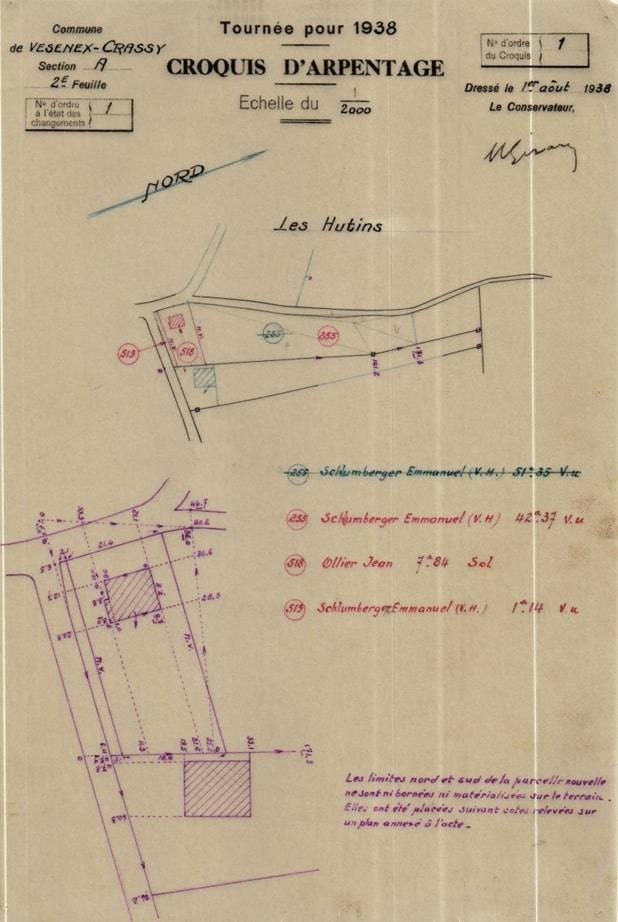 Commune
de VESENEX-CRASSY
Section A
2E Feuille
N° d'ordre
à l'état des
changements
1
Tournée pour 1938
CROQUIS D'ARPENTAGE
Echelle du 1/2000
N° d'ordre
du Croquis
1
Dressé le 1er août 1938
Le Conservateur,
NORD
Les Hutins
519
518
255
255
255 Schlumberger Emmanuel (V.H.) 51a35 V.u
255 Schlumberger Emmanuel (V.H) 42a37 V.u
518 Ollier Jean 7a84 Sol
519 Schlumberger Emmanuel (V.H.) 1a14 V.u
44.7
40.2
21.4
36.6
20.3
m.v.
33.1
171.3
Les limites nord et sud de la parcelle nouvelle
ne sont ni bornées ni matérialisées sur le terrain.
Elles ont été placées suivant cotes relevées sur
un plan annexé à l'acte.